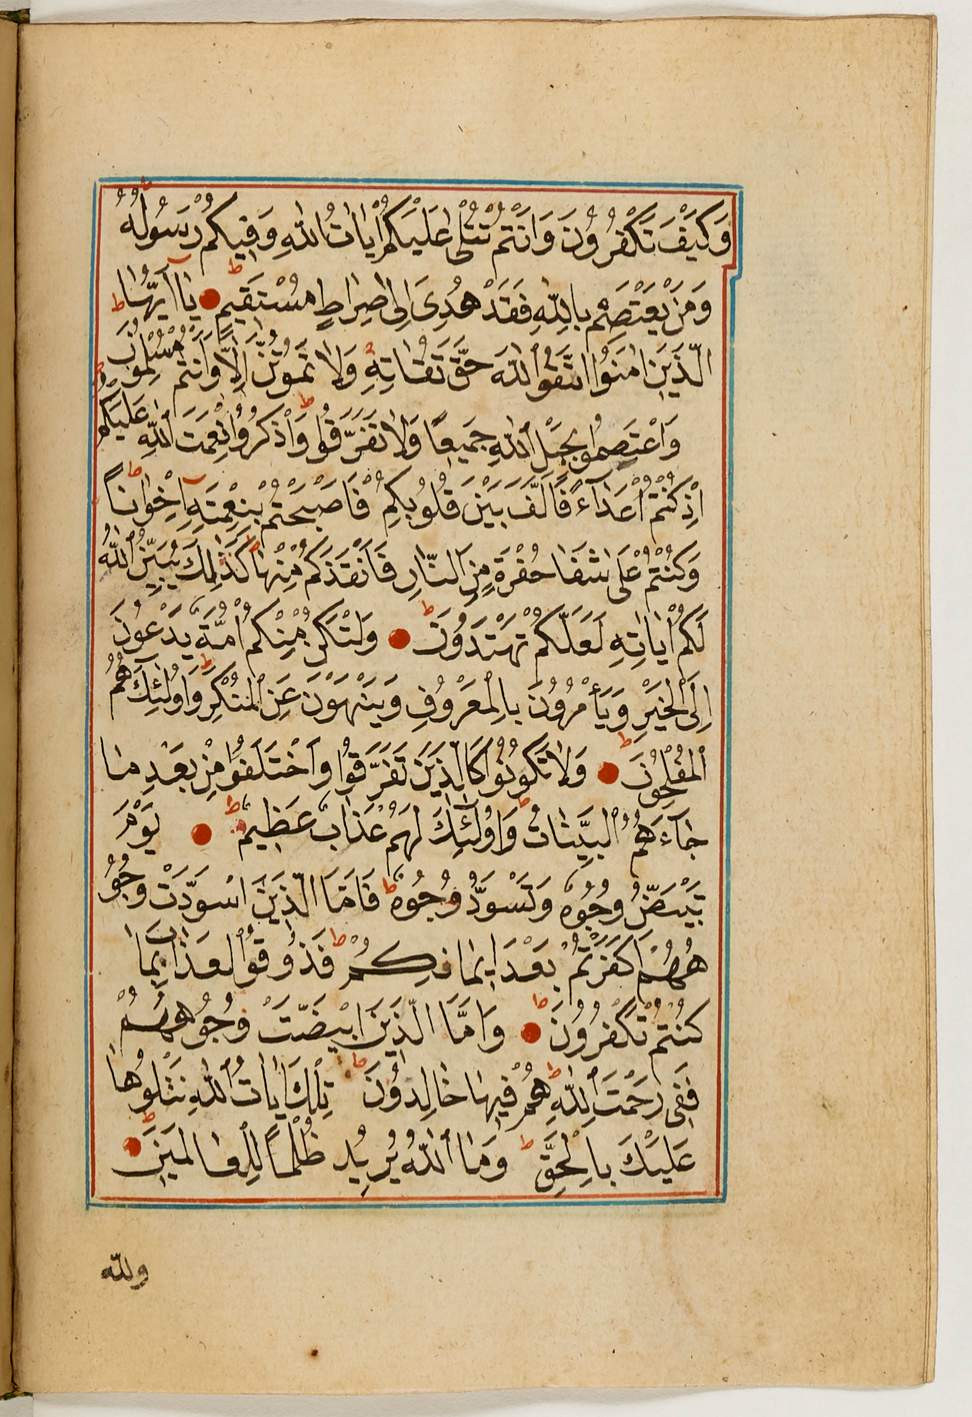 وَكَيْفَ تَكْفُرُونَ وَاَنْتُمْ تُتْلٰى عَلَيْكُمْ اٰيَاتُ اللّٰهِ وَفِيكُمْ رَسُولُهُ ط
وَمَنْ يَعْتَصِمْ بِاللّٰهِ فَقَدْ هُدِىَ اِلٰى صِرَاطٍ مُسْتَقِيمٍ ط يَا اَيُّهَا
الَّذِينَ اٰمَنُوا اتَّقُوا اللّٰهَ حَقَّ تُقَاتِهِ وَلَا تَمُوتُنَّ اِلَّا وَاَنْتُمْ مُسْلِمُونَ
وَاعْتَصِمُوا بِحَبْلِ اللّٰهِ جَمِيعًا وَلَا تَفَرَّقُوا ط وَاذْكُرُوا نِعْمَتَ اللّٰهِ عَلَيْكُمْ
اِذْ كُنْتُمْ اَعْدَآءً فَاَلَّفَ بَيْنَ قُلُوبِكُمْ فَاَصْبَحْتُمْ بِنِعْمَتِهِ اِخْوَانًا ط
وَكُنْتُمْ عَلٰى شَفَا حُفْرَةٍ مِنَ النَّارِ فَاَنْقَذَكُمْ مِنْهَا ط كَذٰلِكَ يُبَيِّنُ اللّٰهُ
لَكُمْ اٰيَاتِهِ لَعَلَّكُمْ تَهْتَدُونَ ط وَلْتَكُنْ مِنْكُمْ اُمَّةٌ يَدْعُونَ
اِلَى الْخَيْرِ وَيَأْمُرُونَ بِالْمَعْرُوفِ وَيَنْهَوْنَ عَنِ الْمُنْكَرِ ط وَاُولٰئِكَ هُمُ
الْمُفْلِحُونَ ط وَلَا تَكُونُوا كَالَّذِينَ تَفَرَّقُوا وَاخْتَلَفُوا مِنْ بَعْدِ مَا
جَآءَهُمُ الْبَيِّنَاتُ ط وَاُولٰئِكَ لَهُمْ عَذَابٌ عَظِيمٌ ط يَوْمَ
تَبْيَضُّ وُجُوهٌ وَتَسْوَدُّ وُجُوهٌ ط فَاَمَّا الَّذِينَ اسْوَدَّتْ وُجُو
هُهُمْ اَكَفَرْتُمْ بَعْدَ اِيمَانِكُمْ ط فَذُوقُوا الْعَذَابَ بِمَا
كُنْتُمْ تَكْفُرُونَ ط وَاَمَّا الَّذِينَ ابْيَضَّتْ وُجُوهُهُمْ
فَفِى رَحْمَتِ اللّٰهِ ط هُمْ فِيهَا خَالِدُونَ ط تِلْكَ اٰيَاتُ اللّٰهِ نَتْلُوهَا
عَلَيْكَ بِالْحَقِّ ط وَمَا اللّٰهُ يُرِيدُ ظُلْمًا لِلْعَالَمِينَ ط
ولله